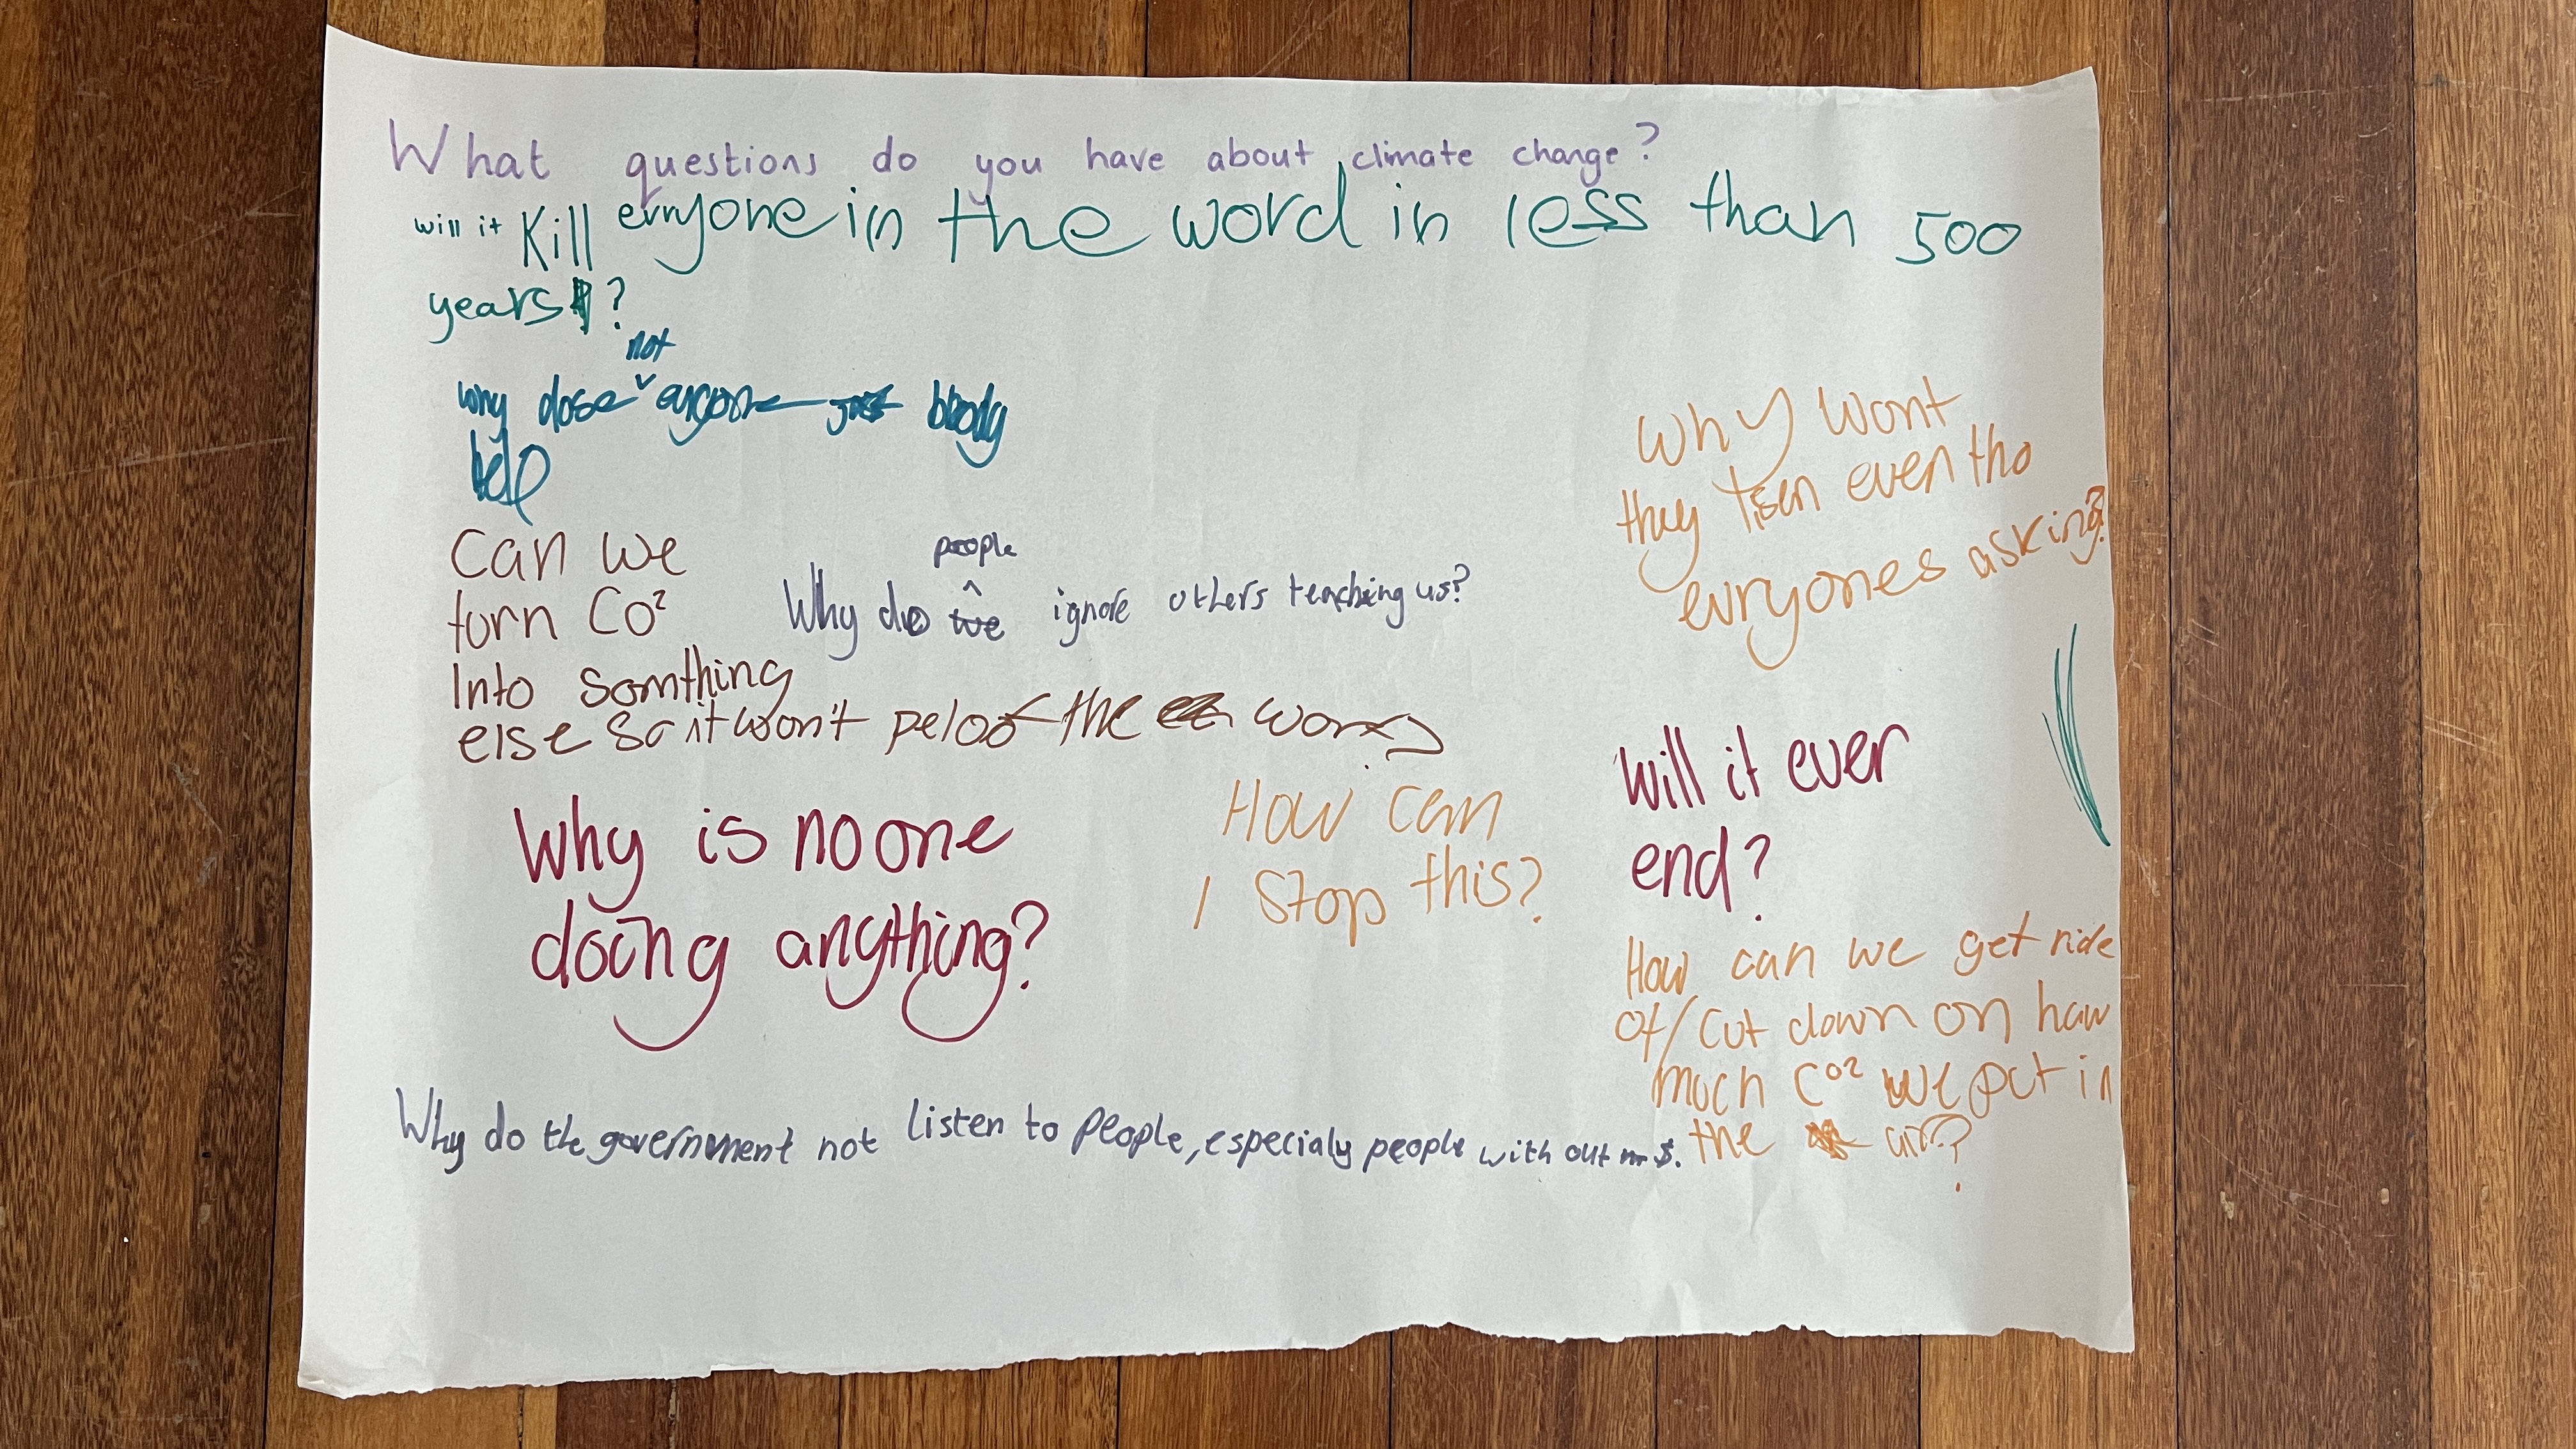 What questions do you have about climate change?
will it Kill evryone in the word in less than 500
years?
not
why dose anyone bloody
help
Can we
turn Co²
Into somthing
else so it won't peloot the
people
Why do we ignore others teaching us?
Why wont
they lisen even tho
evryones asking?
Why is no one
doing anything?
How can
I stop this?
will it ever
end?
How can we get ride
of/cut down on haw
much Co² we put in
the air?
Why do the government not listen to people, especialy people with out $.